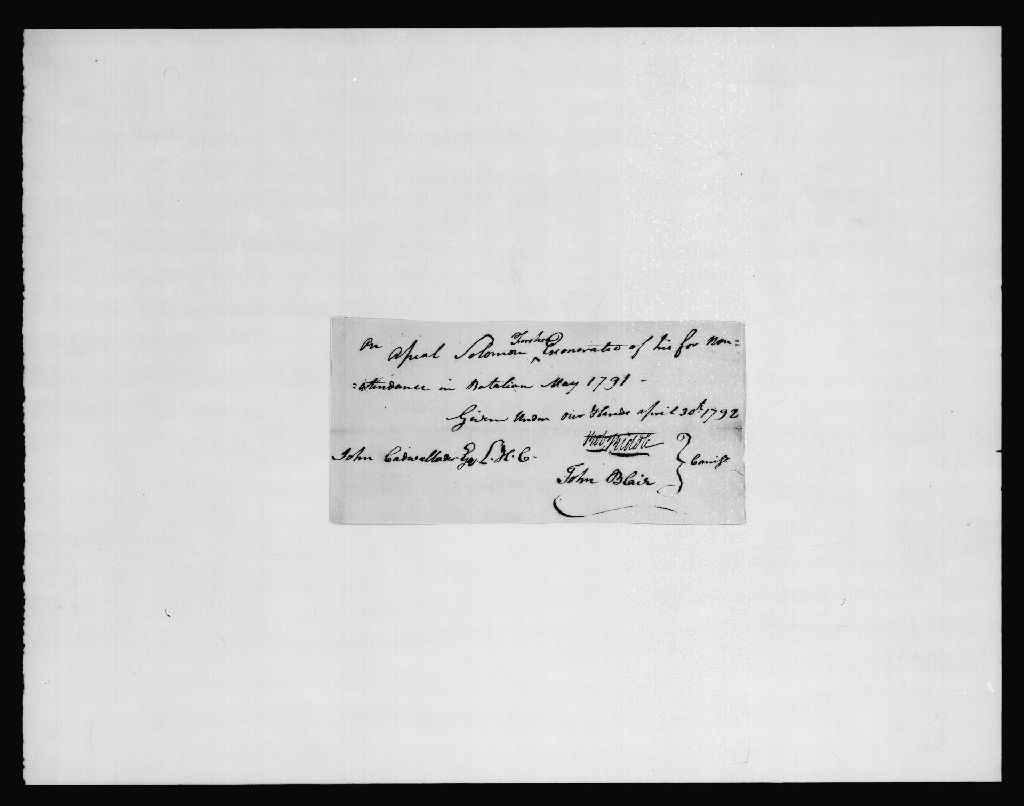 On apeal Solomon Exonerated of his for Non=
=atendance in Batalion May 1791 -
Given Under our Hands april 30th 1792
John Cadwallader Esqr L. H. C.
John Blair